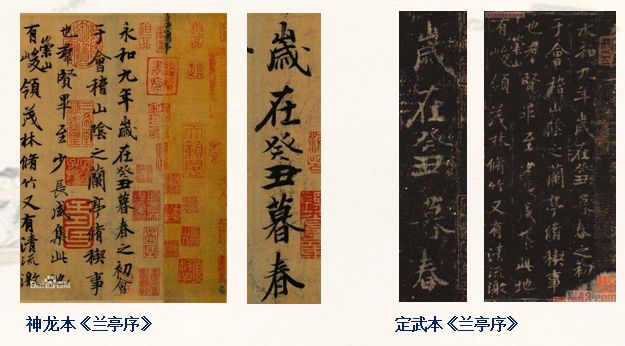 永和九年歲在癸丑暮春之初會
于會稽山陰之蘭亭脩稧事
也羣賢畢至少長咸集此地
有崇山峻領茂林脩竹又有清流激
歲在癸丑暮春
歲在癸丑暮春
永和九年歲在癸丑暮春之初會
于會稽山陰之蘭亭脩稧事
也羣賢畢至少長咸集此地
有崇山峻領茂林脩竹又有清流激
Bai百科
神龙本《兰亭序》
定武本《兰亭序》